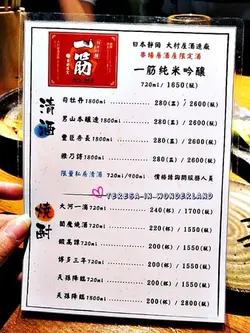 一筋
日本靜岡 大村屋酒造廠
華埕房酒屋限定酒
一筋純米吟釀
720ml/ 1650(瓶)
清酒
司牡丹1800ml 280(盅) /2600(瓶)
男山本釀造1800ml 280(盅) /2600(瓶)
豐臣吾長1800ml 280(盅) /2600(瓶)
雅乃詩1800ml 280(盅) /2600(瓶)
限量私房清酒 720ml/900ml 價格請詢問服務人員
TERESA-IN-WONDERLAND
燒酎
大河一滴720ml 240(杯) /1700(瓶)
閻魔燒酒720ml 220(杯) /1550(瓶)
鍛高譚720ml 200(杯) /1550(瓶)
博多三年720ml 200(杯) /1550(瓶)
天孫降臨720ml 200(杯) /1550(瓶)
天孫降臨1800ml 200(杯) /2800(瓶)